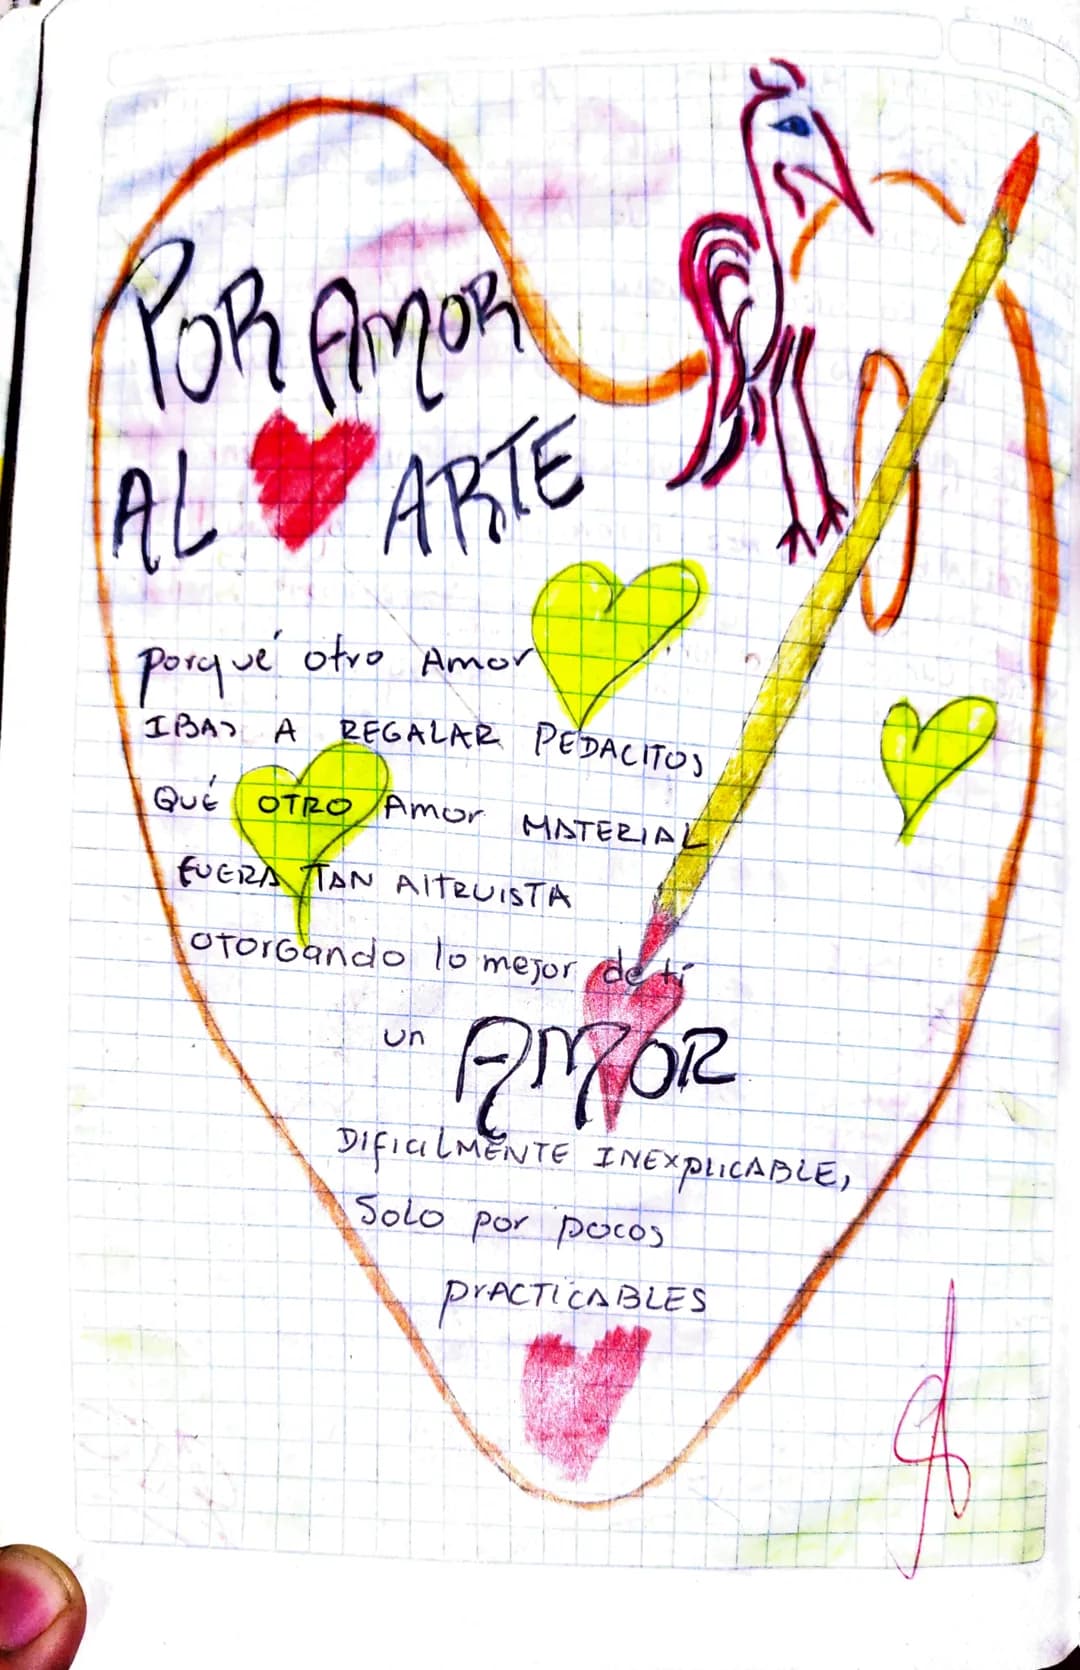 POR AMOR
AL ARTE
porqué otro Amor
IBAS A REGALAR PEDACITOS
QUÉ OTRO Amor MATERIAL
FUERA TAN AlTRUISTA
OTOrGando lo mejor de tí
un AMOR
DIFICILMENTE INEXPLICABLE,
Solo por pocos
PrACTICABLES